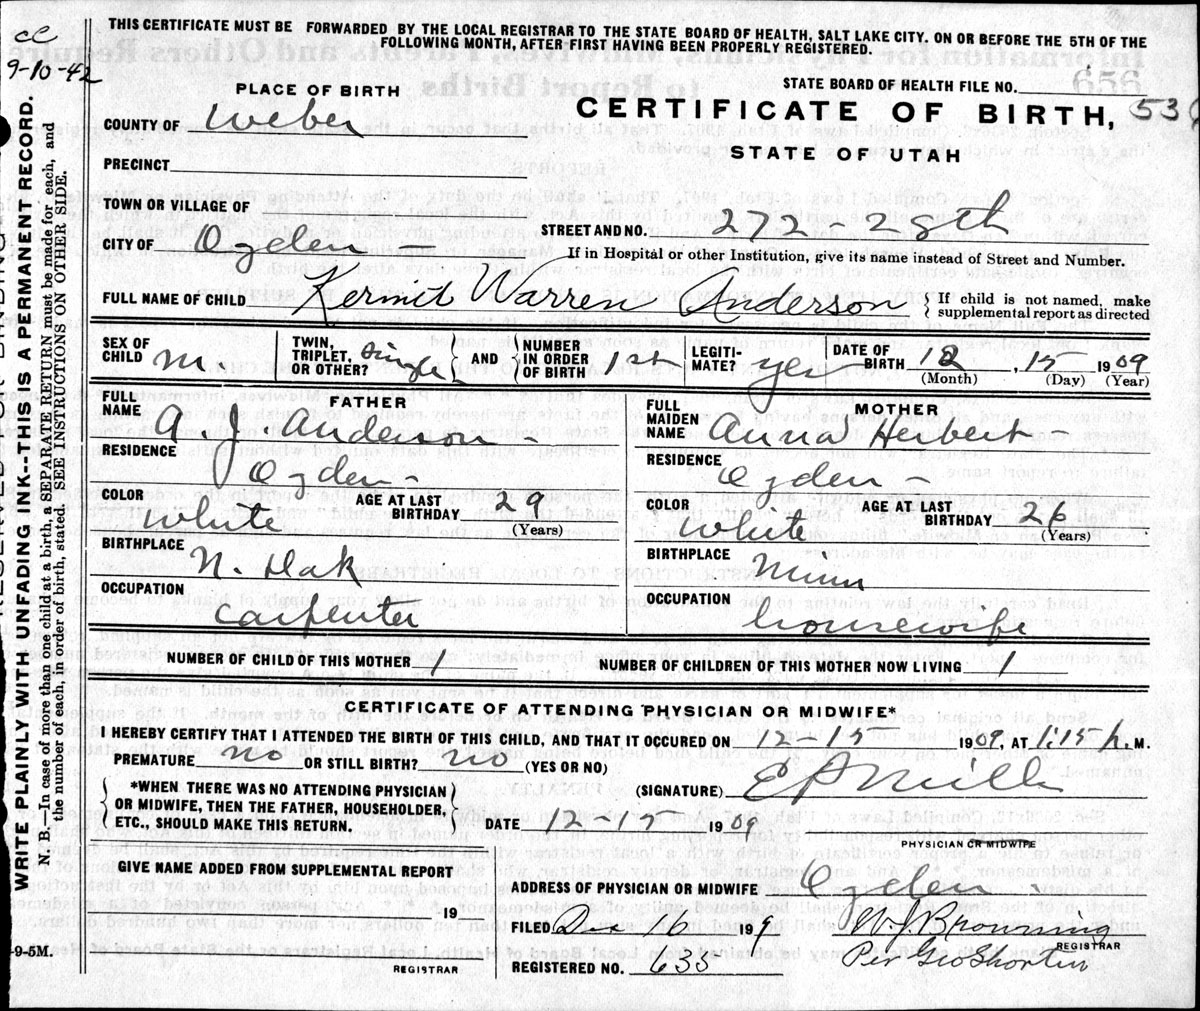 THIS CERTIFICATE MUST BE FORWARDED BY THE LOCAL REGISTRAR TO THE STATE BOARD OF HEALTH, SALT LAKE CITY, ON OR BEFORE THE 5TH OF THE
FOLLOWING MONTH, AFTER FIRST HAVING BEEN PROPERLY REGISTERED.
9-10-42
STATE BOARD OF HEALTH FILE NO.
PLACE OF BIRTH
CERTIFICATE OF BIRTH,
STATE OF UTAH
COUNTY OF Weber
PRECINCT
TOWN OR VILLAGE OF
CITY OF Ogden
STREET AND NO. 272 - 28th
If in Hospital or other Institution, give its name instead of Street and Number.
FULL NAME OF CHILD Kermit Warren Anderson
If child is not named, make
supplemental report as directed
SEX OF CHILD m.
TWIN, TRIPLET, OR OTHER? single
AND NUMBER IN ORDER OF BIRTH 1st
LEGITIMATE? yes
DATE OF BIRTH 12, 15 1909
(Month) (Day) (Year)
FATHER
FULL NAME A. J Anderson -
RESIDENCE Ogden -
COLOR White
AGE AT LAST BIRTHDAY 29
(Years)
BIRTHPLACE N. Dak
OCCUPATION Carpenter
MOTHER
FULL MAIDEN NAME Anna Herbert -
RESIDENCE Ogden -
COLOR White
AGE AT LAST BIRTHDAY 26
(Years)
BIRTHPLACE Minn
OCCUPATION housewife
NUMBER OF CHILD OF THIS MOTHER 1
NUMBER OF CHILDREN OF THIS MOTHER NOW LIVING 1
CERTIFICATE OF ATTENDING PHYSICIAN OR MIDWIFE*
I HEREBY CERTIFY THAT I ATTENDED THE BIRTH OF THIS CHILD, AND THAT IT OCCURED ON 12 - 15 1909, AT 1:15 P. M.
PREMATURE no OR STILL BIRTH? no (YES OR NO)
*WHEN THERE WAS NO ATTENDING PHYSICIAN
OR MIDWIFE, THEN THE FATHER, HOUSEHOLDER,
ETC., SHOULD MAKE THIS RETURN.
(SIGNATURE)
DATE 12 - 15 1909
PHYSICIAN OR MIDWIFE
GIVE NAME ADDED FROM SUPPLEMENTAL REPORT
19
REGISTRAR
ADDRESS OF PHYSICIAN OR MIDWIFE Ogden -
FILED Dec 16 199
W J Browning
REGISTRAR
Per Geo Shorten
REGISTERED NO. 635
WRITE PLAINLY WITH UNFADING INK--THIS IS A PERMANENT RECORD.
N. B.—In case of more than one child at a birth, a SEPARATE RETURN must be made for each, and
the number of each, in order of birth, stated. SEE INSTRUCTIONS ON OTHER SIDE.
-9-5M.